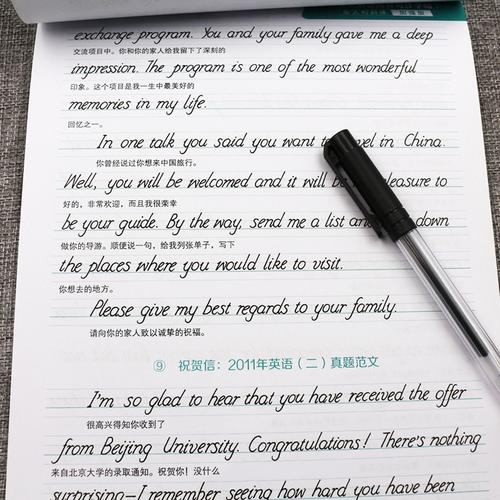 exchange program. You and your family gave me a deep
交流项目中。你和你的家人给我留下了深刻的
impression. The program is one of the most wonderful
印象。这个项目是我一生中最美好的
memories in my life.
回忆之一。
In one talk you said you want in China.
你曾经说过你想来中国旅行。
Well, you will be welcomed and it will to
好的，非常欢迎，而且我很荣幸
be your guide. By the way, send me a list down
做你的导游。顺便说一句，给我列张单子，写下
the places where you would like to visit.
你想去的地方。
Please give my best regards to your family.
请向你的家人致以诚挚的祝福。
⑨ 祝贺信：2011年英语（二）真题范文
I'm so glad to hear that you have received the offer
很高兴得知你收到了
from Beijing University. Congratulations! There's nothing
来自北京大学的录取通知。祝贺你！没什么
surprising—I remember seeing how hard you have been